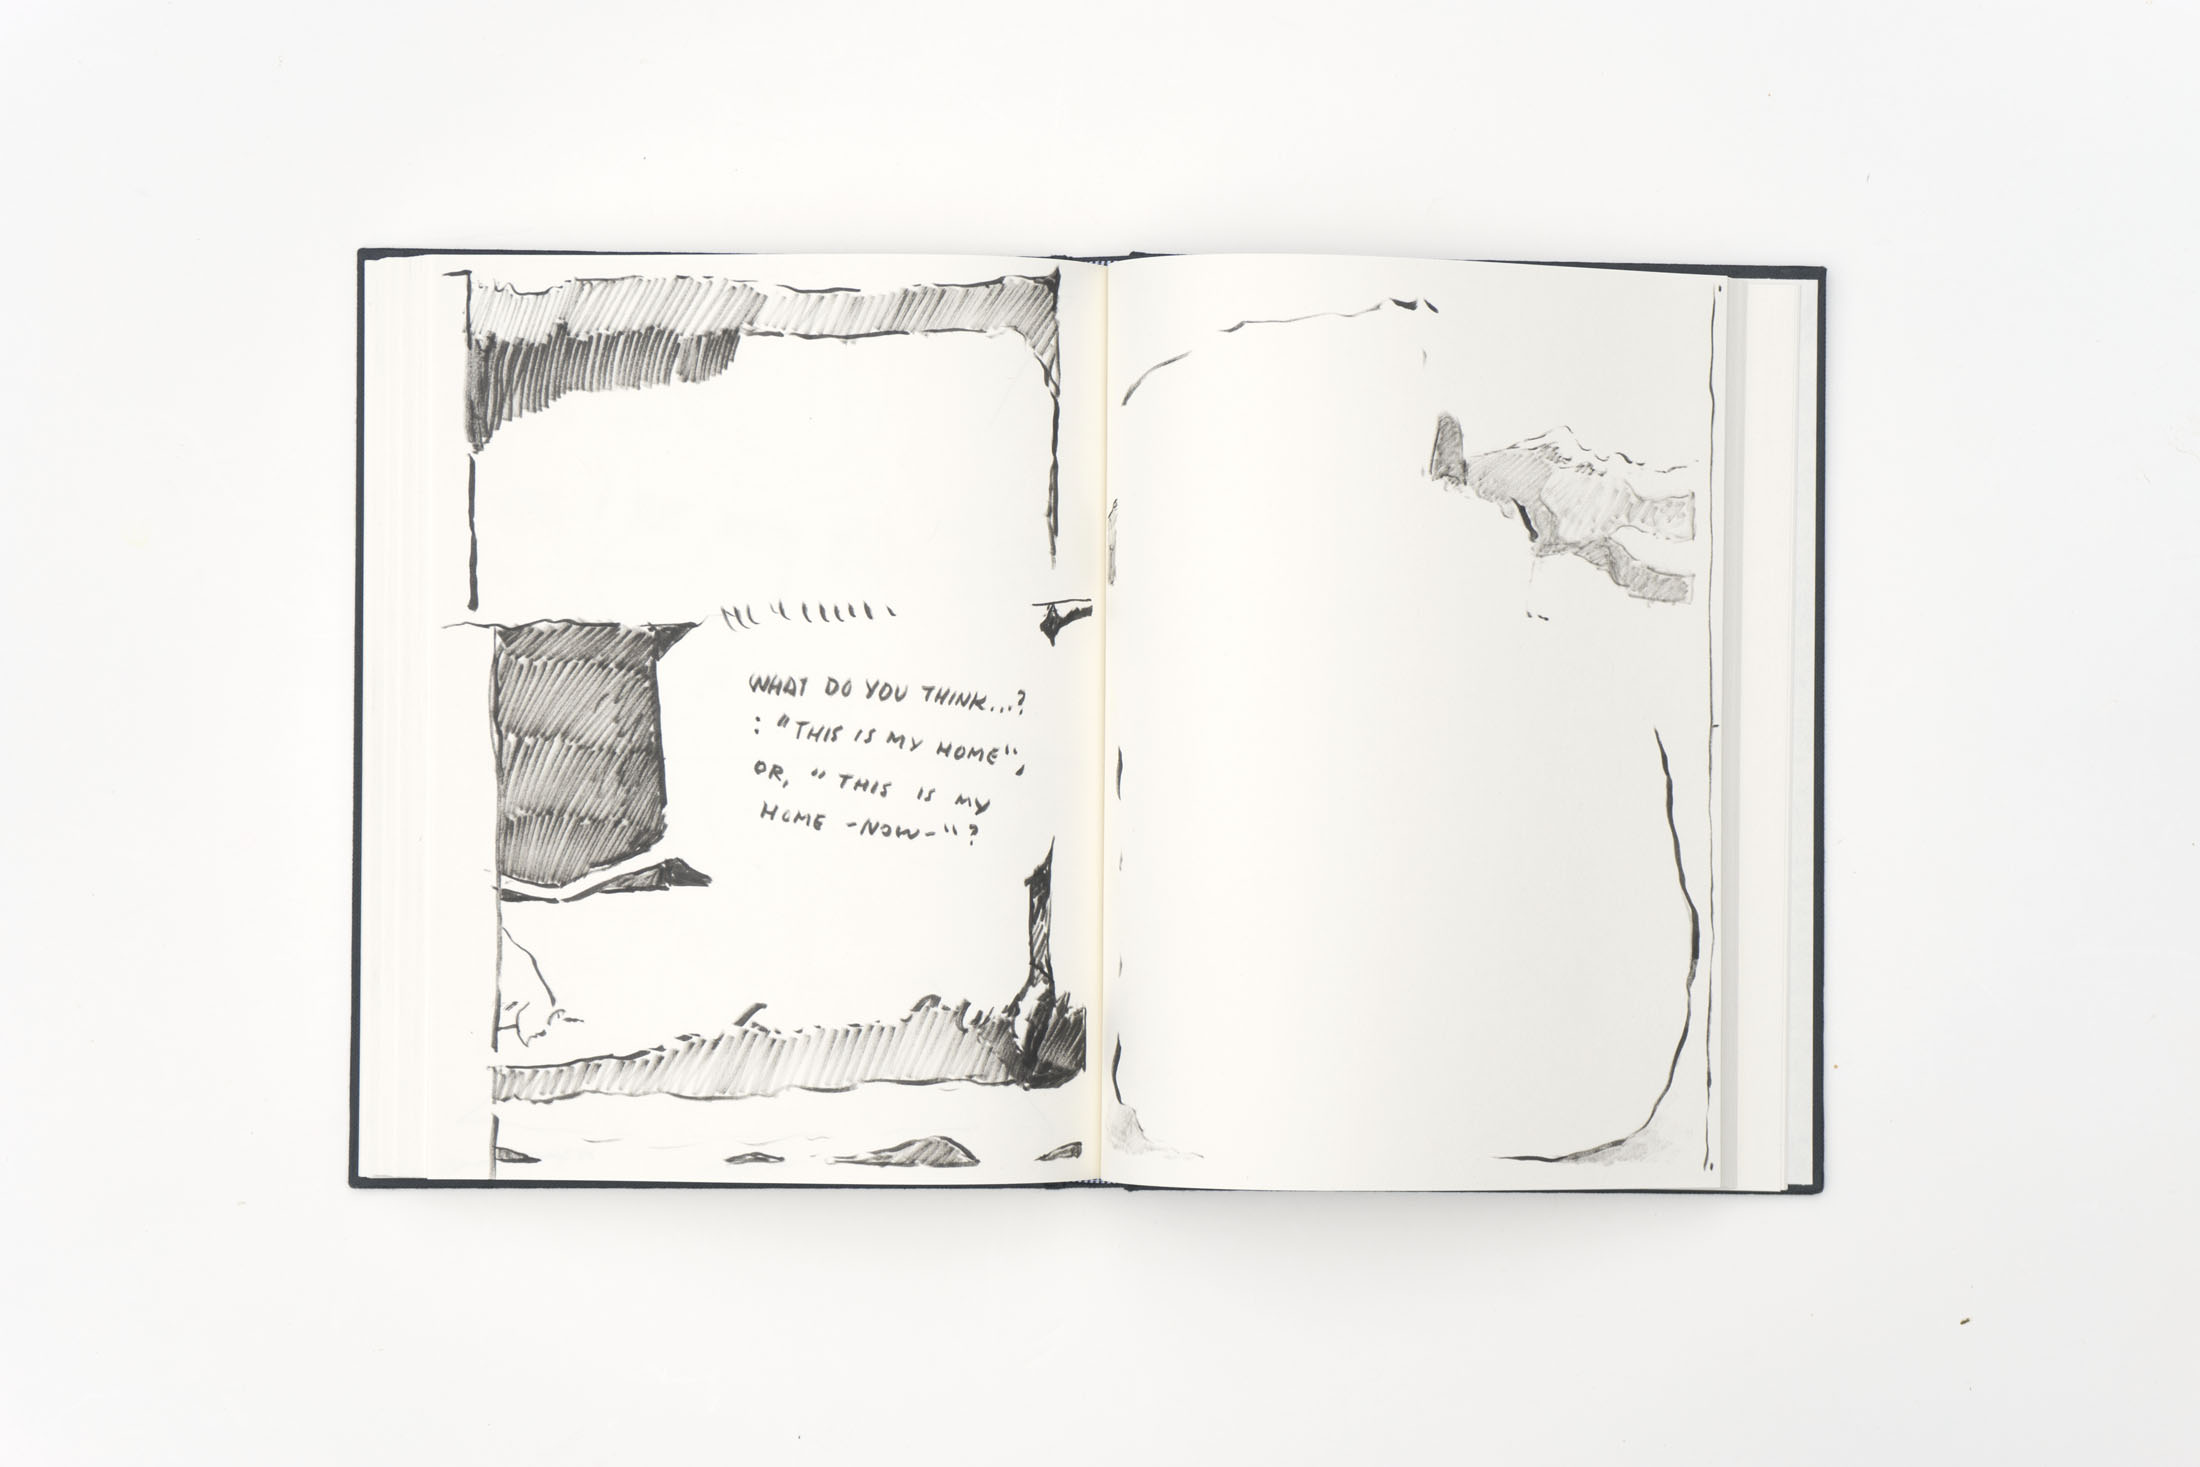 WHAT DO YOU THINK...?
: "THIS IS MY HOME",
OR, "THIS IS MY
HOME -NOW-"?